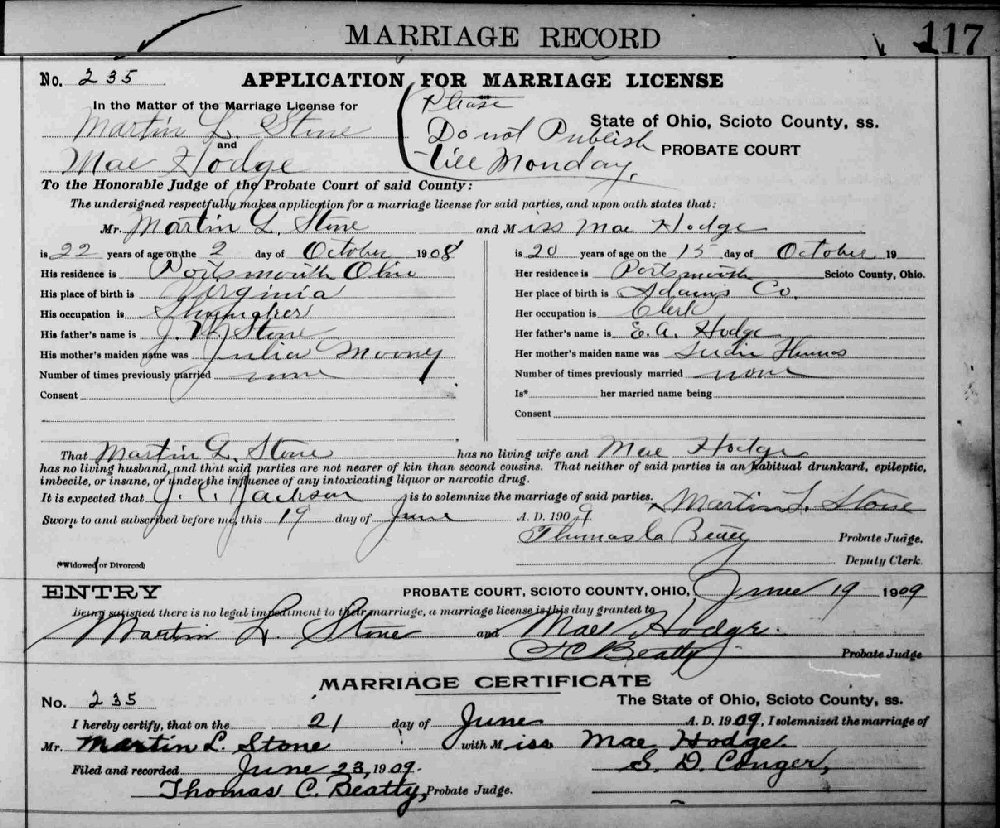 MARRIAGE RECORD 117
No. 235 APPLICATION FOR MARRIAGE LICENSE
In the Matter of the Marriage License for
Martin L. Stone
and
Mae Hodge
Please
Do not Publish
till Monday.
State of Ohio, Scioto County, ss.
PROBATE COURT
To the Honorable Judge of the Probate Court of said County:
The undersigned respectfully makes application for a marriage license for said parties, and upon oath states that:
Mr. Martin L. Stone and Miss Mae Hodge
is 22 years of age on the 2 day of October 1908
His residence is Portsmouth Ohio
His place of birth is Virginia
His occupation is Shoemaker
His father's name is J. M. Stone
His mother's maiden name was Julia Mooney
Number of times previously married none
Consent
is 20 years of age on the 15 day of October 19
Her residence is Portsmouth Scioto County, Ohio.
Her place of birth is Adams Co.
Her occupation is Clerk
Her father's name is E. A. Hodge
Her mother's maiden name was
Number of times previously married none
Is* her married name being
Consent
That Martin L. Stone has no living wife and Mae Hodge
has no living husband, and that said parties are not nearer of kin than second cousins. That neither of said parties is an habitual drunkard, epileptic,
imbecile, or insane, or under the influence of any intoxicating liquor or narcotic drug.
It is expected that Jackson is to solemnize the marriage of said parties. Martin L. Stone
Sworn to and subscribed before me, this 19 day of June A. D. 1909
Thomas C. Beatty Probate Judge.
(*Widowed or Divorced) Deputy Clerk.
ENTRY PROBATE COURT, SCIOTO COUNTY, OHIO, June 19 1909
Being satisfied there is no legal impediment to their marriage, a marriage license is this day granted to
Martin L. Stone and Mae Hodge.
T C Beatty Probate Judge
MARRIAGE CERTIFICATE
No. 235 The State of Ohio, Scioto County, ss.
I hereby certify, that on the 21 day of June A. D. 1909, I solemnized the marriage of
Mr. Martin L. Stone with Miss Mae Hodge.
Filed and recorded June 23, 1909. S. D. Conger,
Thomas C. Beatty, Probate Judge.